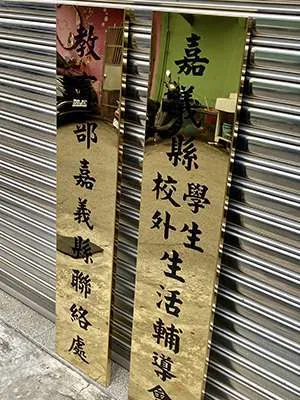 嘉義縣學生校外生活輔導會
教育部嘉義縣聯絡處